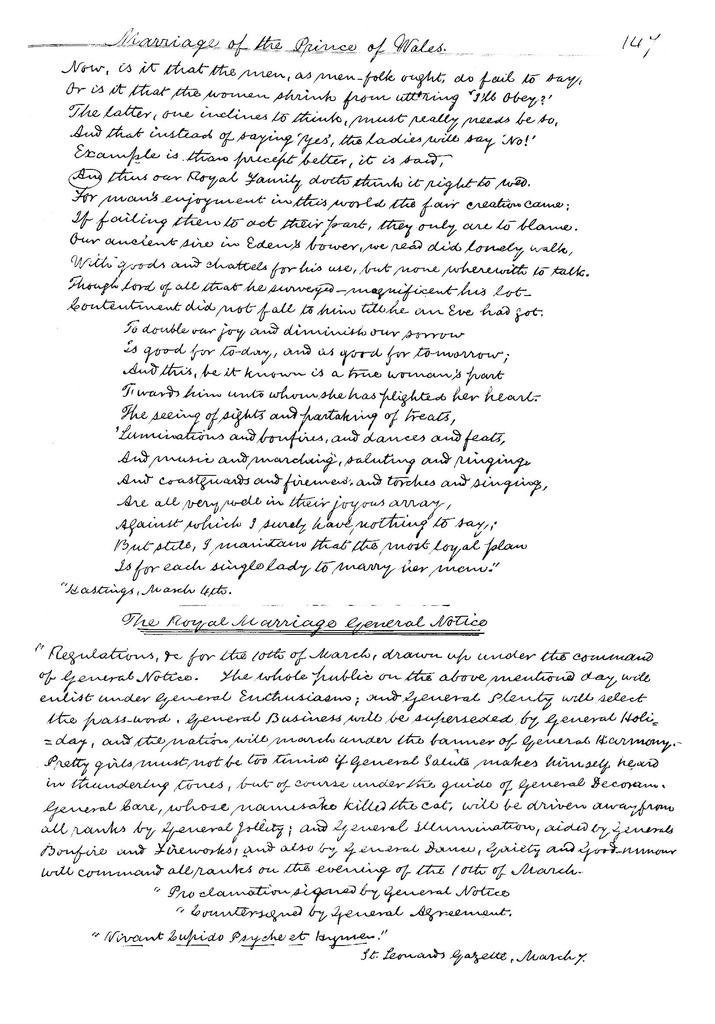 Marriage of the Prince of Wales. 147
Now, is it that the men, as men-folk ought, do fail to say,
Or is it that the women shrink from utt'ring "I'll Obey?'
The latter, one inclines to think, must really needs be so,
And that instead of saying 'Yes', the ladies will say 'No!'
Example is than precept better, it is said,
And thus our Royal Family doth think it right to wed.
For man's enjoyment in this world the fair creation came;
If failing then to act their part, they only are to blame.
Our ancient sire in Eden's bower, we read did lonely walk,
With goods and chattels for his use, but none wherewith to talk.
Though lord of all that he surveyed—magnificent his lot—
Contentment did not fall to him till he an Eve had got.
To double our joy and diminish our sorrow
Is good for to-day, and as good for tomorrow;
And this, be it known is a true woman's part
T'wards him unto whom she has plighted her heart.
The seeing of sights and partaking of treats,
'Luminations and bonfires, and dances and feats,
And music and marching, saluting and ringing
And coastguards and firemen, and torches and singing,
Are all very well in their joyous array,
Against which I surely have nothing to say;
But still, I maintain that the most loyal plan
Is for each single lady to marry her man."
"Hastings, March 4th.
The Royal Marriage General Notice
"Regulations, &c for the 10th of March, drawn up under the command
of General Notice. The whole public on the above mentioned day will
enlist under General Enthusiasm; and General Plenty will select
the pass-word. General Business will be superseded by General Holi=
=day, and the nation will march under the banner of General Harmony.-
Pretty girls must not be too timid if General Salute makes himself heard
in thundering tones, but of course under the guide of General Decorum.
General Care, whose namesake killed the cat, will be driven away from
all ranks by General Jollity; and General Illumination, aided by Generals
Bonfire and Fireworks, and also by General Dance, Gaiety and Good-humour
will command all ranks on the evening of the 10th of March.
"Proclamation signed by General Notice
"Countersigned by General Agreement.
"Vivant Cupido Psyche et Hymen."
St. Leonards Gazette, March 7.